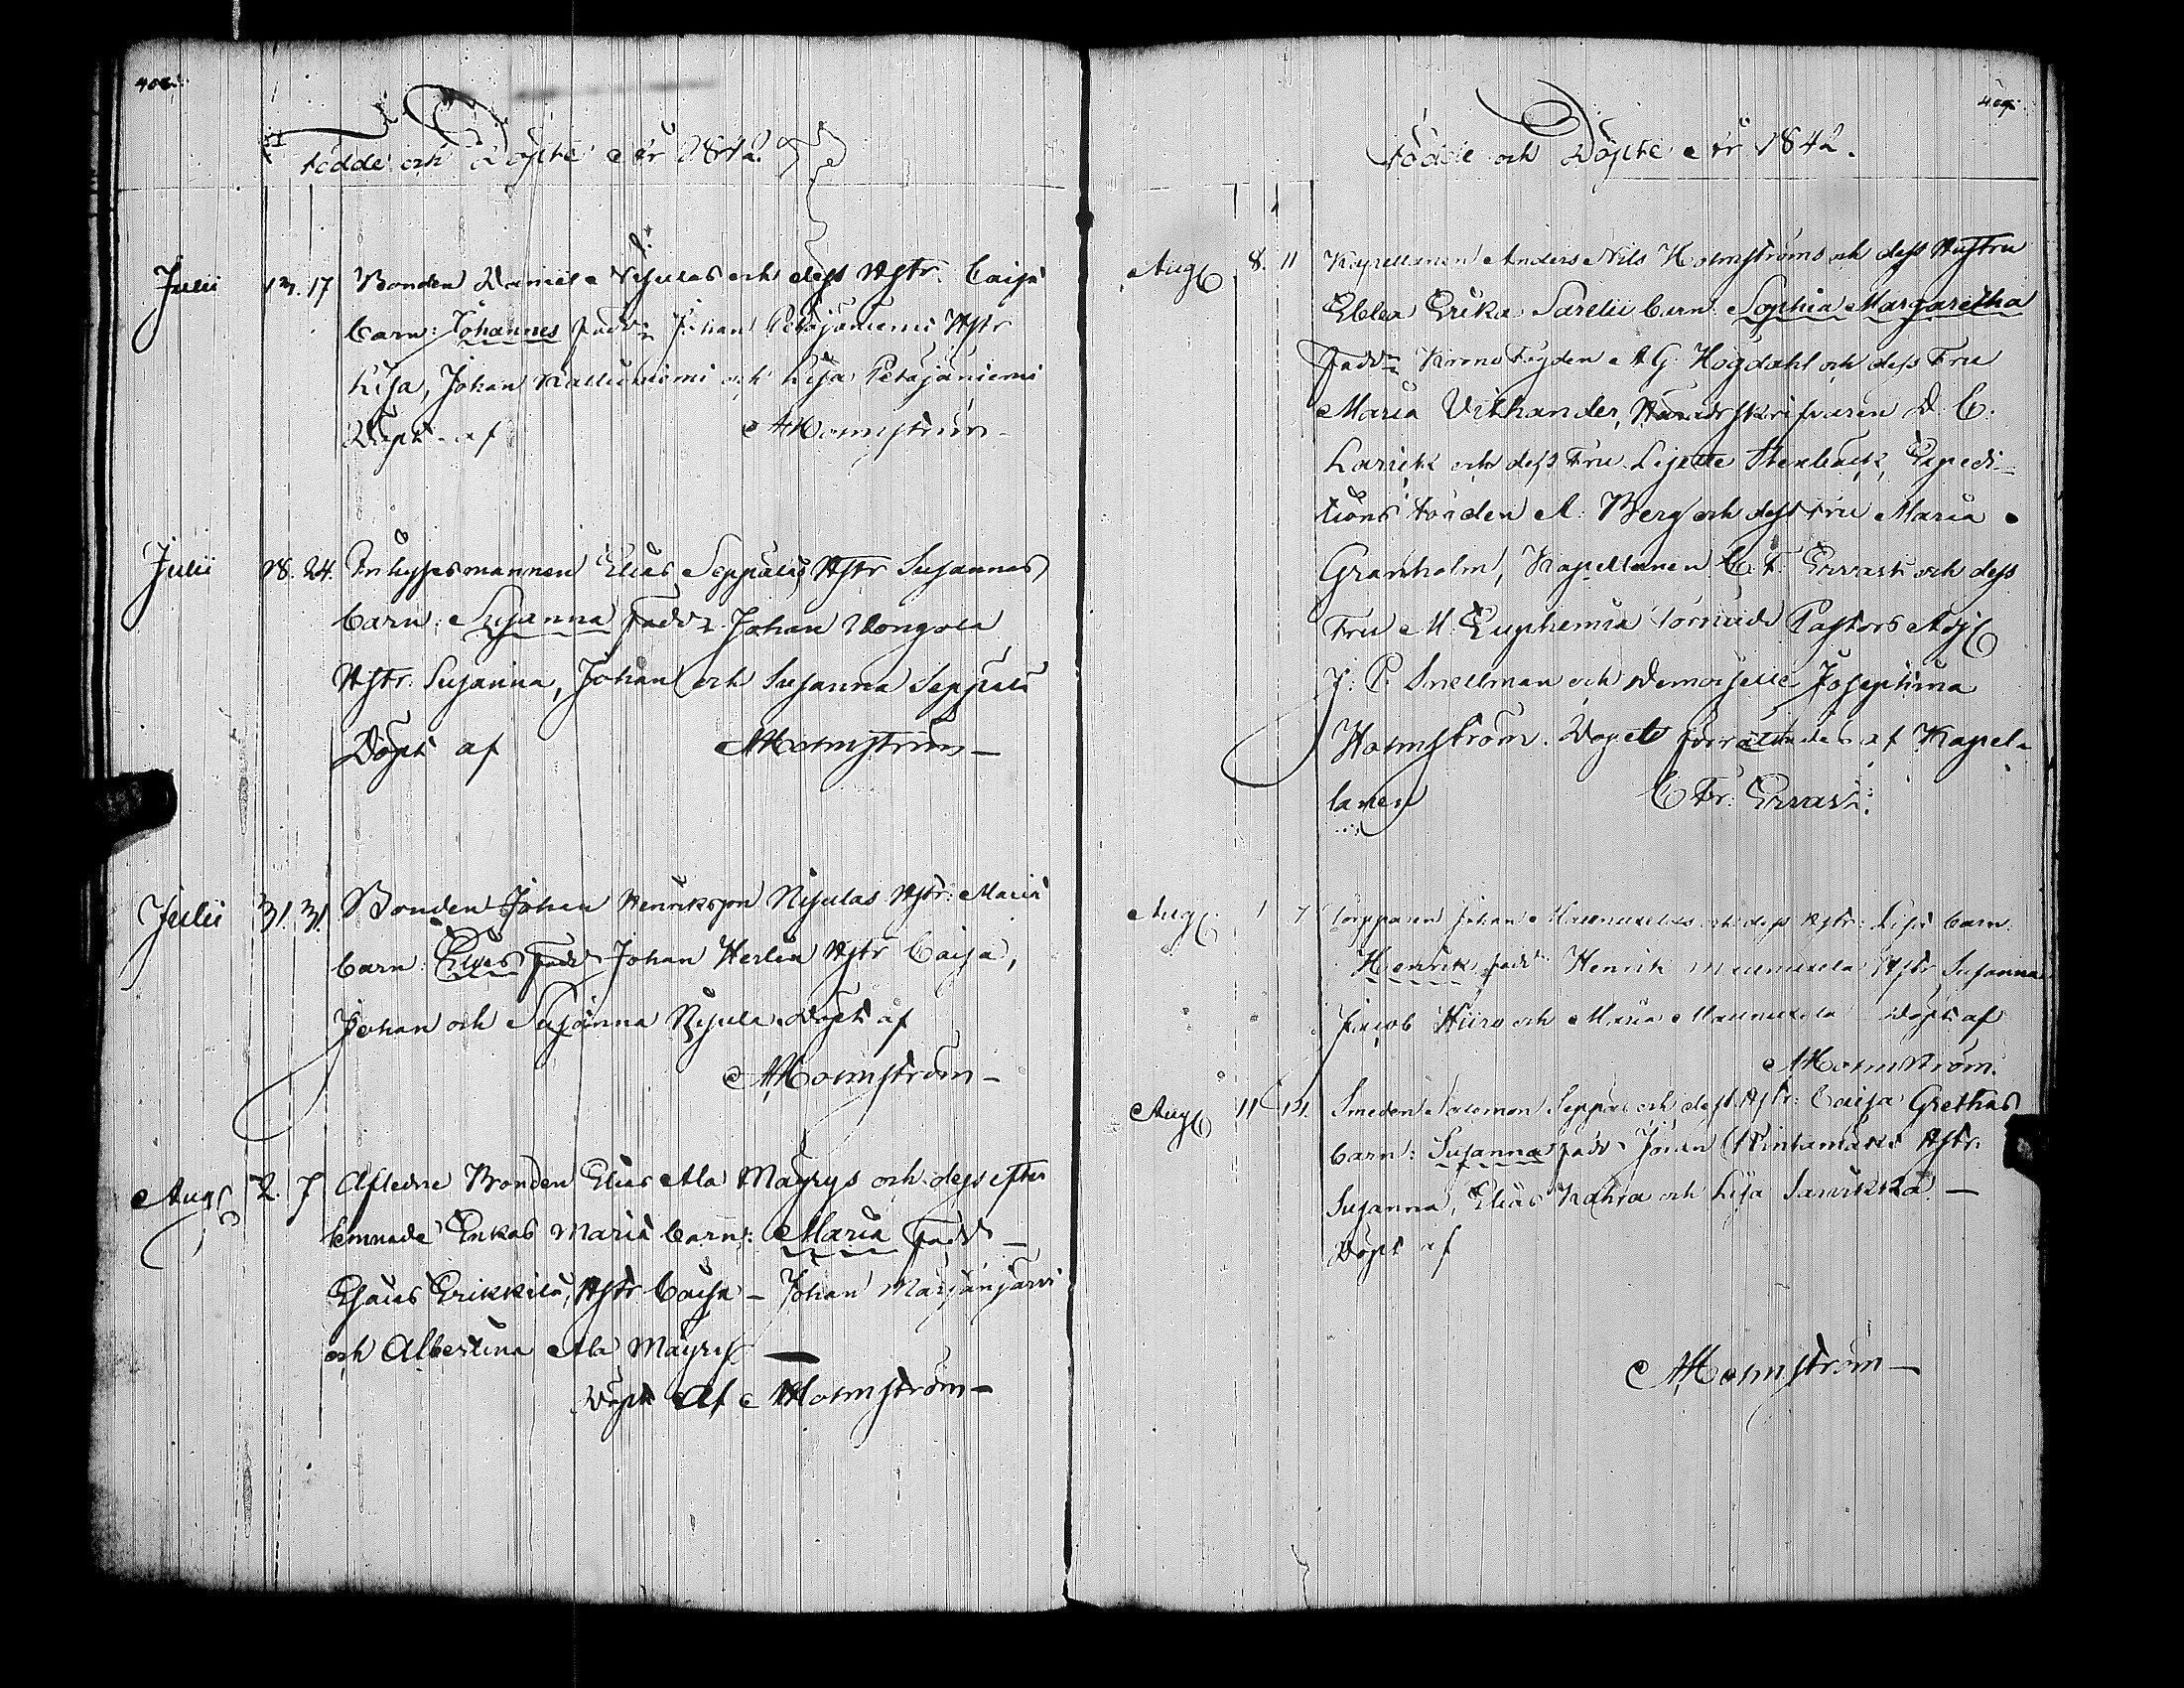 födde och Döpte År 1842.
Julii 13. 17 Bonden Daniel Nisulas och dess Hstr. Caisa
barn: Johannes fadd: Johan Petäjäniemi Hstr
Lisa, Johan Kalluniemi och Lisa Petäjäniemi
Döpt af AHolmström
Julii 18. 24. Elias Seppäläs Hstr Susannas
barn: Susanna fadd: Johan Uongola
Hstr. Susanna, Johan och Susanna Seppälä
Döpt af AHolmström
Julii 31. 31. Bonden Johan Henriksson Nisulas Hstr: Maria
barn: Elias fadd Johan Herlea Hstr Caisa,
Johan och Susanna Nisula. Döpt af
AHolmström
Aug 2. 7 Afledne Bonden Elias Ala Mäyrys och dess efter
lemnade Enkas Maria barn: Maria fadd
Esaias Erikkilä, Hstr Caisa – Johan Marjanjärvi
och Albertina Ala Mäyry –
Döpt Af AHolmström
födde och Döpte År 1842.
Aug 8. 11 Kapellanen Anders Nils Holmströms och dess Hustru
Ebba Erika Sarelii barn Sophia Margaretha
fadd: Krono Fogden A G. Högdahl och dess Fru
Maria Vithander, Häradsskrifvaren D. C.
Larick och dess Fru Lisette Stenbäck, Expedi-
tions Fogden A. Berg och dess Fru Maria
Granholm, Kapellanen C. F. Ervast och dess
Fru M. Euphemia Tornudd Pastors Adj
J. P. Snellman och Demoiselle Josephina
Holmström. Dopet förrättades af Kapel-
lanen C Fr: Ervast.
Aug 1 7 Torpparen Johan Maunuxelas och dess Hstr: Lisa barn:
Henrik fadd Henrik Maunuxela Hstr Susanna
Jacob Hiiro och Maria Maunuxela Döpt af
AHolmström.
Aug 11 14. Smeden Salomon Seppäs och dess Hstr: Caisa Grethas
barn: Susanna fadd Johan Rintamäki Hstr.
Susanna, Elias Kahra och Lisa Sarvikka –
Döpt af
AHolmström